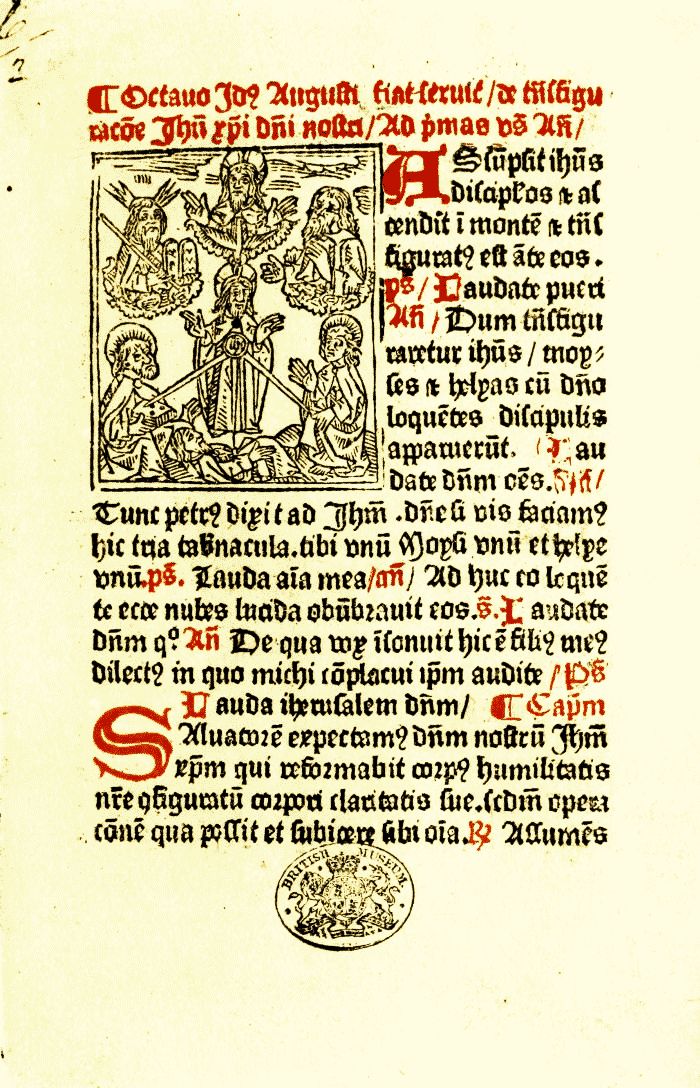 2
¶ Octauo Idꝰ Augusti fiat seruic̄ / de trãsfigu
racõe Jhũ xp̃i dñi nostri / Ad p̃mas vs̃ Añ /
ASsũpsit ihũs
discipl̃os ⁊ as
cendit ĩ montẽ ⁊ trãs
figuratꝰ est ãte eos .
ps̃ / Laudate pueri
Añ / Dum trãsfigu
raretur ihũs / moy⸗
ses ⁊ helyas cũ dño
loquẽtes discipulis
apparuerũt. Lau
date dñm oẽs. Añ /
Tunc petrꝰ dixit ad Jhm̃ .dñe si vis faciamꝰ
hic tria tab̃nacula.tibi vnũ Moysi vnũ et helye
vnũ.ps̃. Lauda aĩa mea / añ / Ad huc eo loquẽ
te ecce nubes lucida obũbrauit eos.s̃. Laudate
dñm qº Añ De qua vox ĩsonuit hic ẽ filiꝰ meꝰ
dilectꝰ in quo michi cõplacui ip̃m audite / Ps̃
Lauda iherusalem dñm / ¶ Cap̃m
SAluatorẽ expectamꝰ dñm nostrũ Jhm̃
xp̃m qui reformabit corpꝰ humilitatis
nr̃e ꝯfiguratũ corpori claritatis sue.scdm̃ opera
cõnẽ qua possit et subicere sibi oĩa.℟ Assumẽs
BRITISH MUSEUM